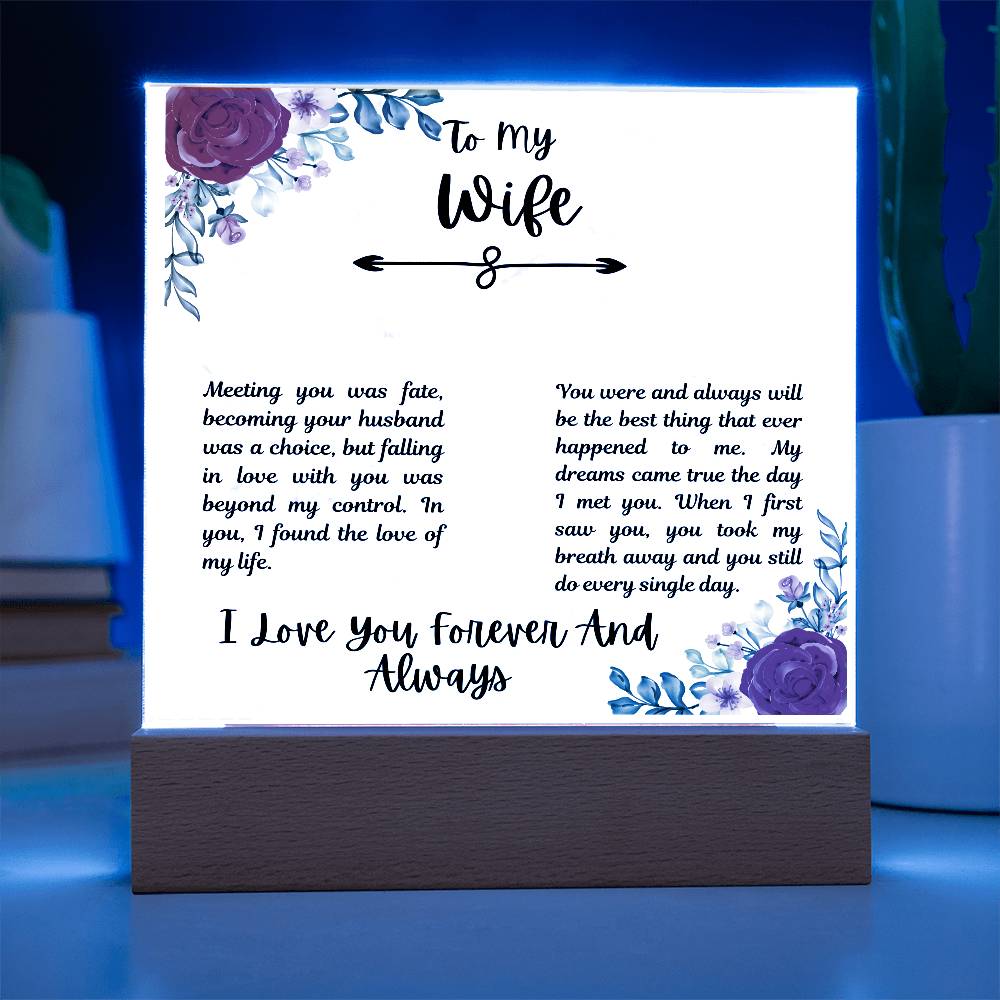 To My
Wife
Meeting you was fate,
becoming your husband
was a choice, but falling
in love with you was
beyond my control. In
you, I found the love of
my life.
You were and always will
be the best thing that ever
happened to me. My
dreams came true the day
I met you. When I first
saw you, you took my
breath away and you still
do every single day.
I Love You Forever And
Always